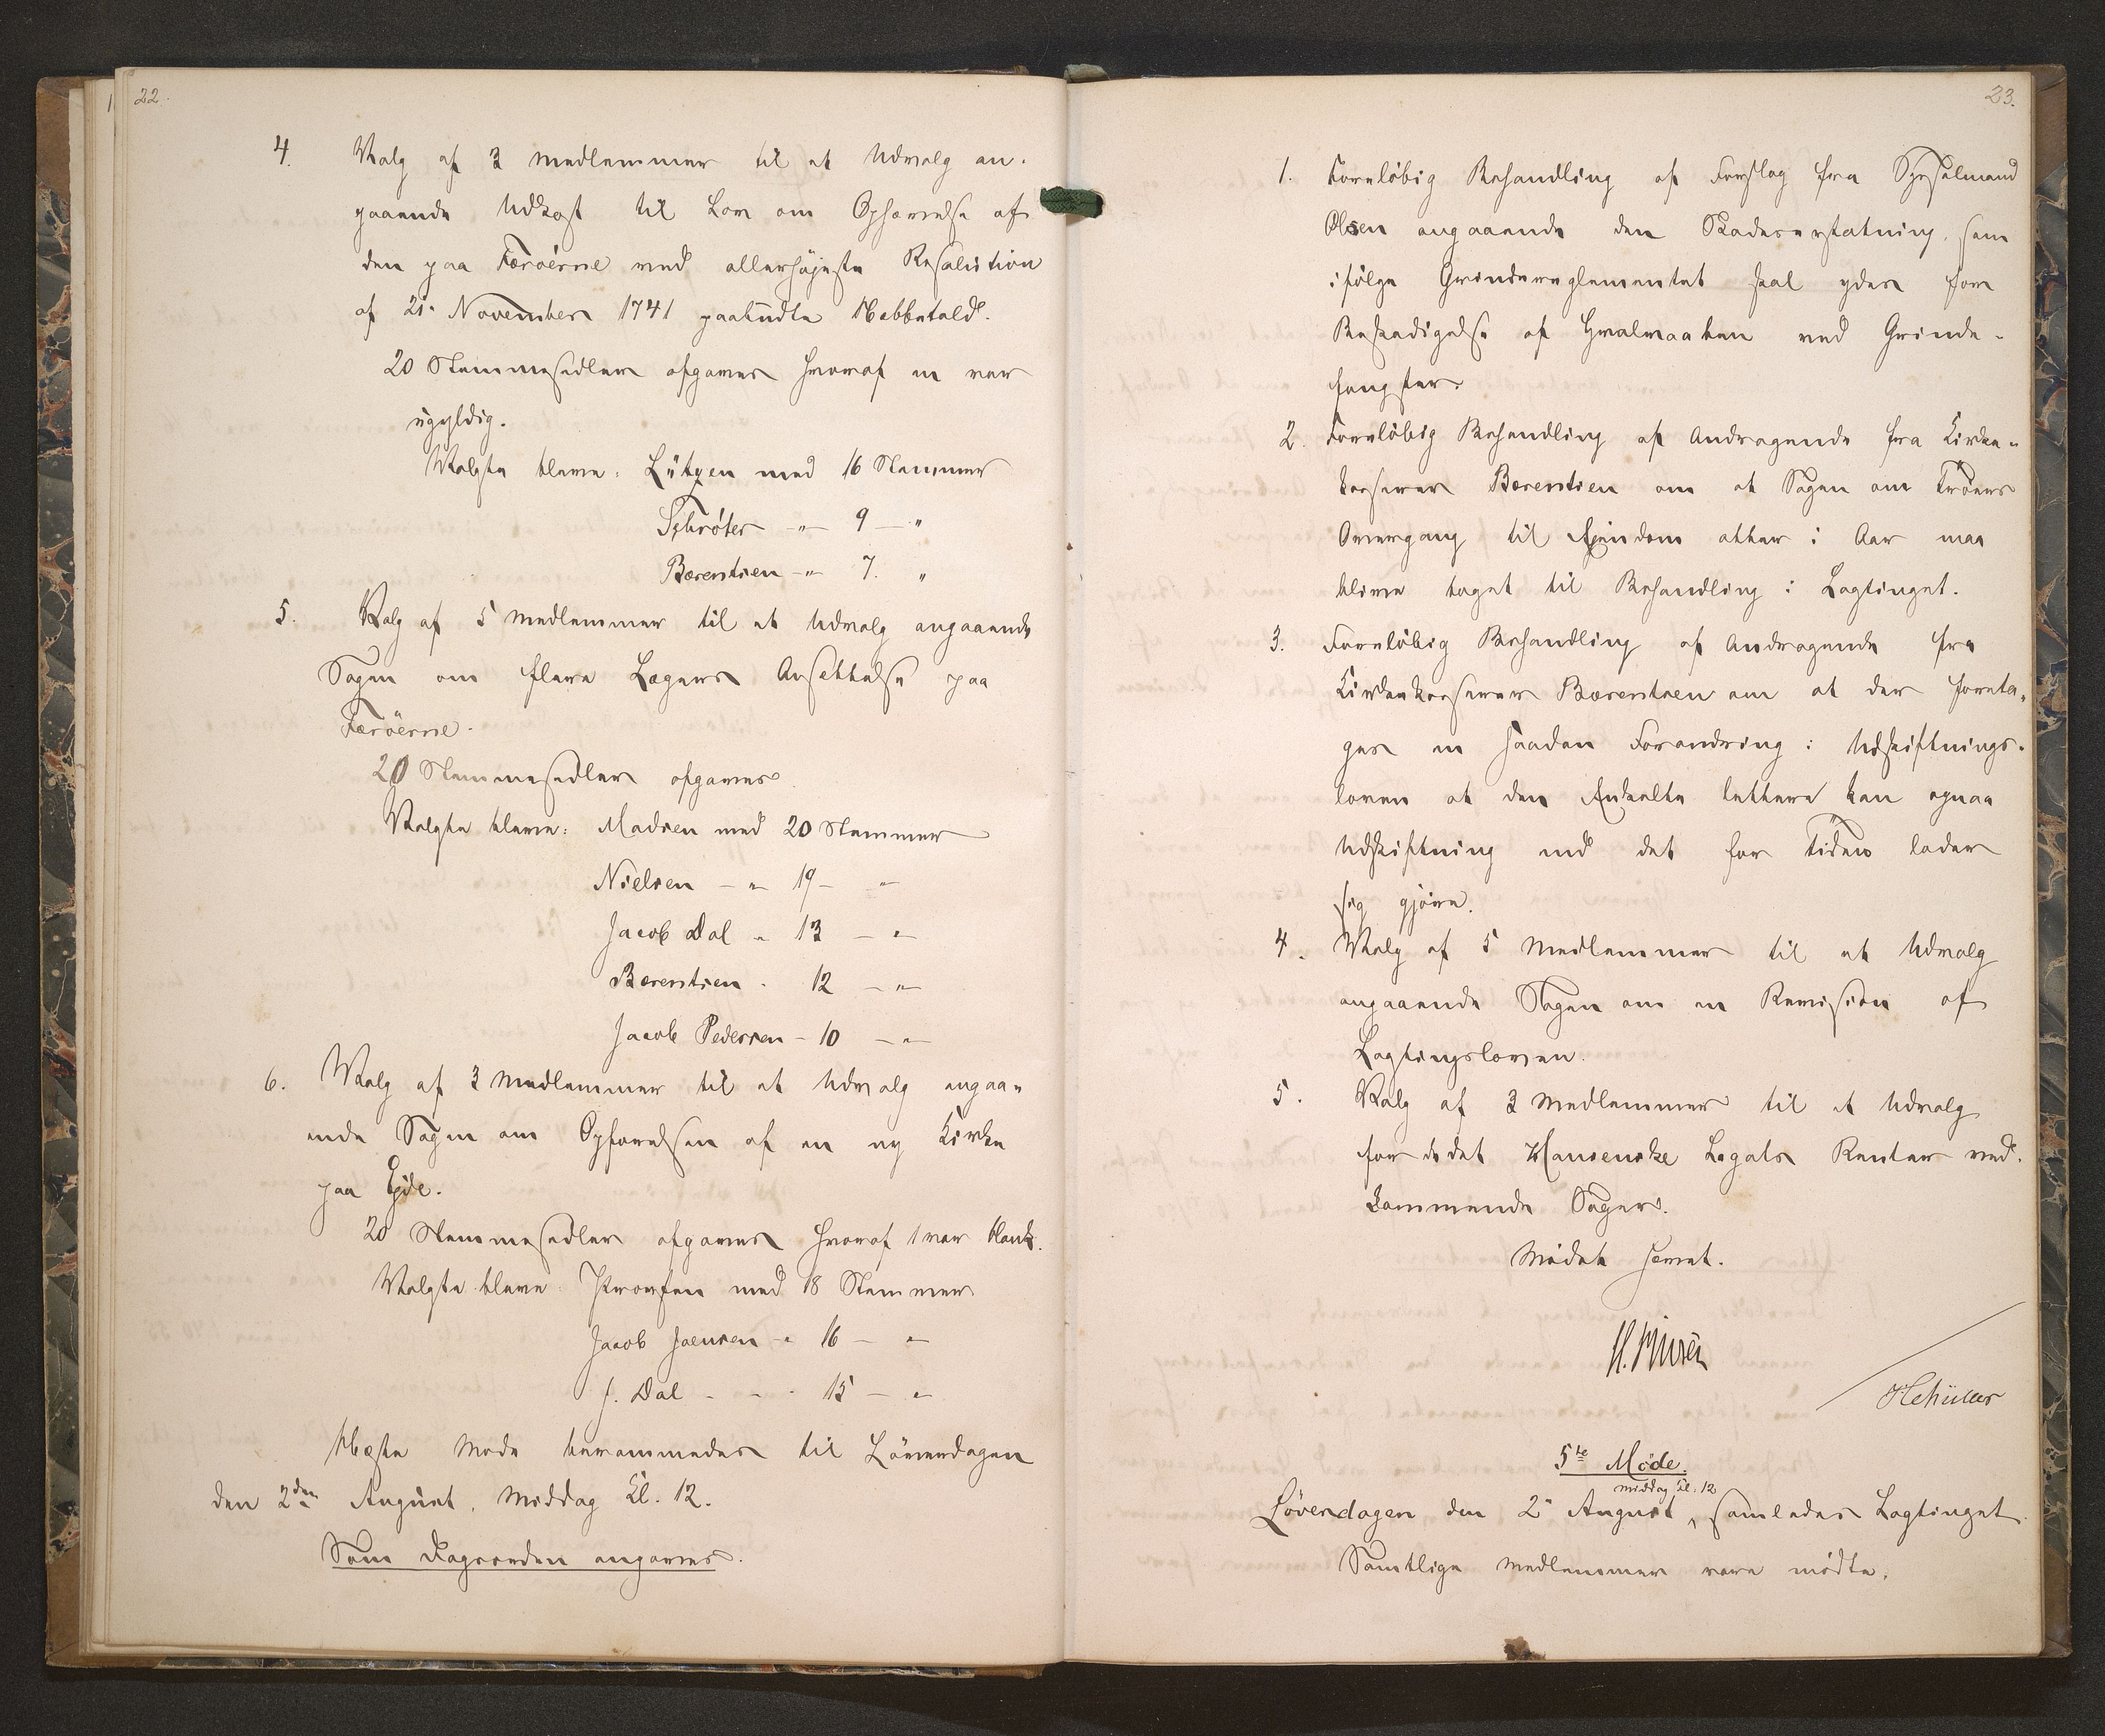 22.
4. Valg af 3 Medlemmer til et Udvalg an-
gaaende Udkast til Lov om Ophævelse af
den paa Færöerne ved allerhöjeste Resolution
af 21. November 1741 paabudte Næbbetold.
20 Stemmesedler afgaves hvoraf en var
ugyldig.
Valgte bleve: Lützen med 16 Stemmer
Schrøter -"- 9 - "
Bærentsen -"- 7. "
5. Valg af 5 Medlemmer til et Udvalg angaaende
Sagen om flere Lægers Ansættelse paa
Færöerne.
20 Stemmesedler afgaves
Valgte bleve: Madsen med 20 Stemmer
Nielsen - " 19 - "
Jacob Dal " 13 - "
Bærentsen - 12 - "
Jacob Pedersen - 10 - "
6. Valg af 3 Medlemmer til et Udvalg angaa-
ende Sagen om Opførelsen af en ny Kirke
paa Ejde.
20 Stemmesedler afgaves hvoraf 1 var blank.
Valgte bleve Provsten med 18 Stemmer
Jacob Joensen " 16 - "
J. Dal - - - 15 - "
Næste Møde berammedes til Löverdagen
den 2den August, Middag Kl. 12.
Som Dagsorden angaves.
23.
1. Foreløbig Behandling af Forslag fra Sysselmand
Olsen angaaende den Skadeserstatning, som
ifølge Grindereglementet skal ydes for
Beskadigelse af Hvalvaaben ved Grinde-
fangster.
2. Foreløbig Behandling af Andragende fra Kirke-
værger Bærentsen om at Sagen om Traers
Overgang til Ejendom atter i Aar maa
blive taget til Behandling i Lagtinget.
3. Foreløbig Behandling af Andragende fra
Bærentsen om at der foreta-
ges en saadan Forandring i Udskiftnings-
loven at den Enkelte lettere kan opnaa
Udskiftning end det for Tiden lader
sig gjöre.
4. Valg af 5 Medlemmer til et Udvalg
angaaende Sagen om en Revision af
Lagtingsloven.
5. Valg af 3 Medlemmer til et Udvalg
for de det Hansenske Legats Renter ved-
kommende Sager.
Mödet hævet.
HSchüller
5te Möde.
Löverdagen den 2. August middag Kl. 12 samledes Lagtinget.
Samtlige Medlemmer vare mødte.